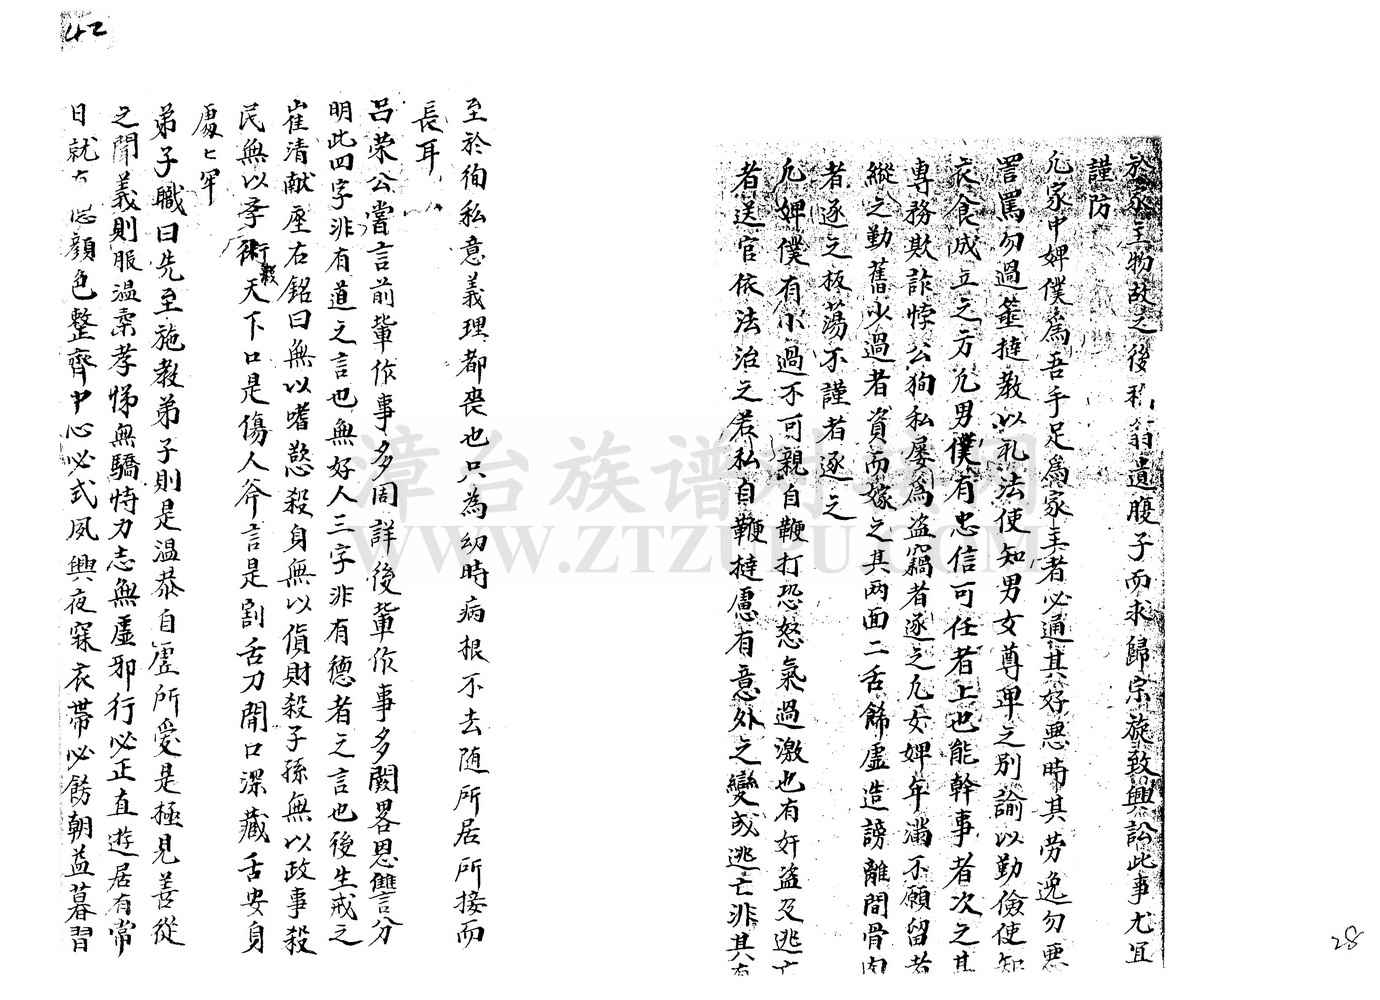 於家主物故之後稱有遺腹子而求歸宗旋致興訟此事尤宜
謹防
凡家中婢僕為吾手足為家主者必通其好惡時其勞逸勿惡
詈罵勿過箠撻教以礼法使知男女尊卑之別諭以勤儉使知
衣食成立之方凡男僕有忠信可任者上也能幹事者次之其
專務欺詐悖公狥私屡為盜竊者逐之凡女婢年滿不願留者
縱之勤舊少過者資而嫁之其两面二舌餙虛造謗離間骨肉
者逐之放蕩不謹者逐之
凡婢僕有小過不可親自鞭打恐怒氣過激也有奸盜及逃亡
者送官依法治之若私自鞭撻慮有意外之變或逃亡非其有
42
至於徇私意義理都喪也只為幼時病根不去随所居所接而
長耳
吕荣公嘗言前輩作事多周詳後輩作事多闕畧恩讐言分
明此四字非有道之言也無好人三字非有德者之言也後生戒之
崔清献座右銘曰無以嗜慾殺身無以貨財殺子孫無以政事殺
民無以學術行殺天下口是傷人斧言是割舌刀閉口深藏舌安身
處匕牢
弟子職曰先至施教弟子則是温恭自虛所爱是極見善從
之聞義則服温柔孝悌無驕恃力志無虛邪行必正直遊居有常
日就 顔色整齊中心必式夙興夜寐衣帶必餝朝益暮習
28
漳台族谱对接网
WWW.ZTZUPU.COM